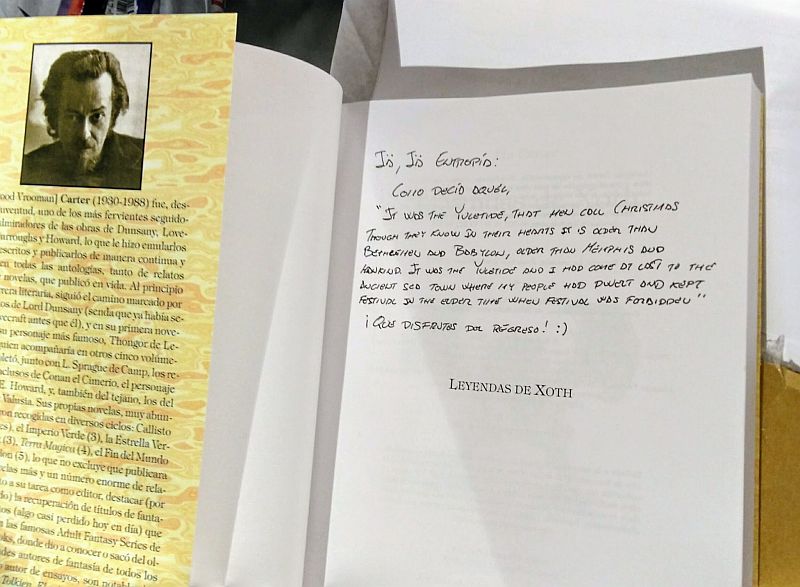 ood Vrooman] Carter (1930-1988) fue, des-
uventud, uno de los más fervientes seguido-
dmiradores de las obras de Dunsany, Love-
urroughs y Howard, lo que le hizo emularlos
escritos y publicarlos de manera continua y
en todas las antologías, tanto de relatos
novelas, que publicó en vida. Al principio
rera literaria, siguió el camino marcado por
os de Lord Dunsany (senda que ya había se-
vecraft antes que él), y en su primera nove-
su personaje más famoso, Thongor de Le-
quien acompañaría en otros cinco volúme-
pletó, junto con L. Sprague de Camp, los re-
clusos de Conan el Cimerio, el personaje
E. Howard, y, también del tejano, los del
Valusia. Sus propias novelas, muy abun-
ron recogidas en diversos ciclos: Callisto
es), el Imperio Verde (3), la Estrella Ver-
(3), Terra Magica (4), el Fin del Mundo
don (5), lo que no excluye que publicara
elas más y un número enorme de rela-
to a su tarea como editor, destacar (por
do) la recuperación de títulos de fanta-
os (algo casi perdido hoy en día) que
n las famosas Adult Fantasy Series de
oks, donde dio a conocer o sacó del ol-
des autores de fantasía de todos los
o autor de ensayos, son notabl
Tolkien.
Iä, Iä Entropía:
Como decía aquél,
"It was the Yuletide, that men call Christmas
Though they know in their hearts it is older than
Bethlehem and Babylon, older than Memphis and
mankind. It was the Yuletide and I had come at last to the
ancient sea town where my people had dwelt and kept
festival in the elder time when festival was forbidden"
¡Que disfrutes del regreso! :)
Leyendas de Xoth